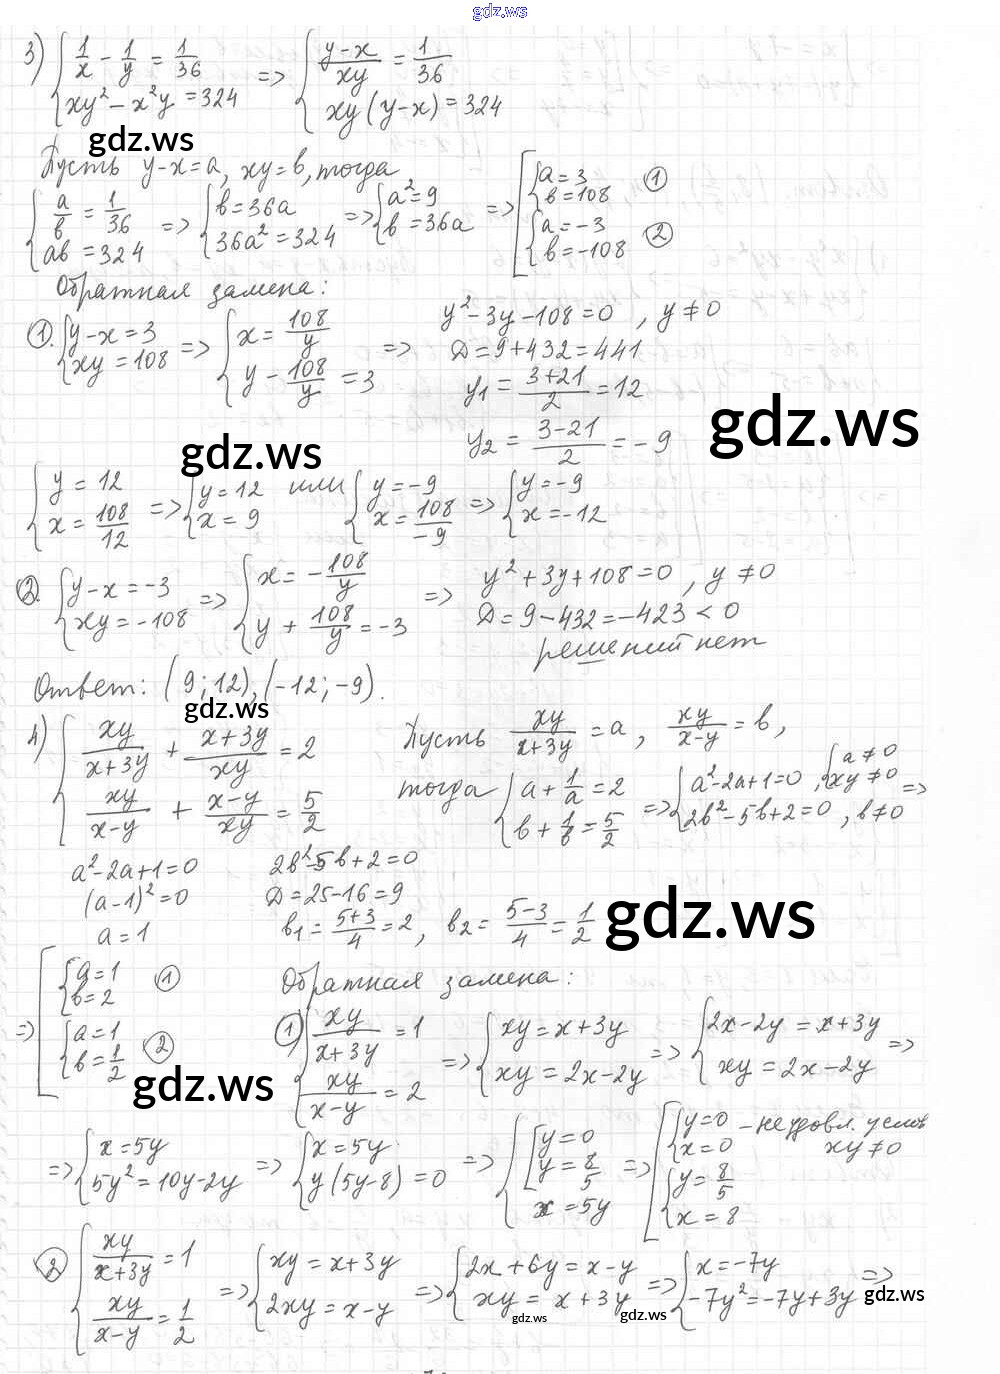 gdz.ws
3) { 1/x - 1/y = 1/36 ; xy² - x²y = 324 => { (y-x)/xy = 1/36 ; xy(y-x) = 324
gdz.ws
Пусть y-x=a, xy=b, тогда
{ a/b = 1/36 ; ab = 324 => { b=36a ; 36a²=324 => { a²=9 ; b=36a => [ { a=3 ; b=108 ① { a=-3 ; b=-108 ②
Обратная замена:
①. { y-x=3 ; xy=108 => { x=108/y ; y - 108/y = 3 => y²-3y-108=0, y≠0
D=9+432=441
y₁ = (3+21)/2 = 12
y₂ = (3-21)/2 = -9
gdz.ws
gdz.ws
{ y=12 ; x=108/12 => { y=12 ; x=9 или { y=-9 ; x=108/-9 => { y=-9 ; x=-12
②. { y-x=-3 ; xy=-108 => { x=-108/y ; y + 108/y = -3 => y²+3y+108=0, y≠0
D=9-432=-423<0
решений нет
Ответ: (9;12), (-12;-9).
gdz.ws
4) { xy/(x+3y) + (x+3y)/xy = 2 ; xy/(x-y) + (x-y)/xy = 5/2
Пусть xy/(x+3y) = a, xy/(x-y) = b,
тогда { a + 1/a = 2 ; b + 1/b = 5/2 => { a²-2a+1=0 ; 2b²-5b+2=0, { a≠0 ; xy≠0, b≠0 =>
a²-2a+1=0 2b²-5b+2=0
(a-1)²=0 D=25-16=9
a=1 b₁ = (5+3)/4 = 2, b₂ = (5-3)/4 = 1/2
gdz.ws
=> [ { a=1 ; b=2 ① { a=1 ; b=1/2 ②
Обратная замена:
①) { xy/(x+3y) = 1 ; xy/(x-y) = 2 => { xy=x+3y ; xy=2x-2y => { 2x-2y=x+3y ; xy=2x-2y =>
gdz.ws
=> { x=5y ; 5y²=10y-2y => { x=5y ; y(5y-8)=0 => { [ y=0 ; y=8/5 ; x=5y => [ { y=0 ; x=0 - не удовл. услов xy≠0 { y=8/5 ; x=8
② { xy/(x+3y) = 1 ; xy/(x-y) = 1/2 => { xy=x+3y ; 2xy=x-y => { 2x+6y=x-y ; xy=x+3y => { x=-7y ; -7y²=-7y+3y =>
gdz.ws
gdz.ws
gdz.ws